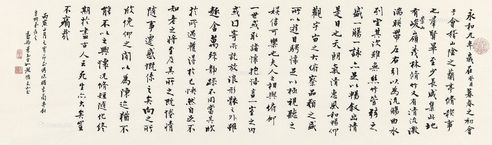 永和九年歲在癸丑暮春之初會
于會稽山陰之蘭亭脩稧事
也羣賢畢至少長咸集此地
有峻領茂林脩竹又有清流激
湍暎帶左右引以為流觴曲水
列坐其次雖無絲竹管弦之
盛一觴一詠亦足以暢敘幽情
是日也天朗氣清惠風和暢仰
觀宇宙之大俯察品類之盛
所以遊目騁懷足以極視聽之
娛信可樂也夫人之相與俯仰
一世或取諸懷抱悟言一室之內
或因寄所託放浪形骸之外雖
趣舍萬殊靜躁不同當其欣
於所遇暫得於己快然自足不
知老之將至及其所之既惓情
隨事遷感慨係之矣向之所
欣俛仰之間以為陳迹猶不
能不以之興懷況脩短隨化終
期於盡古人云死生亦大矣豈
不痛哉